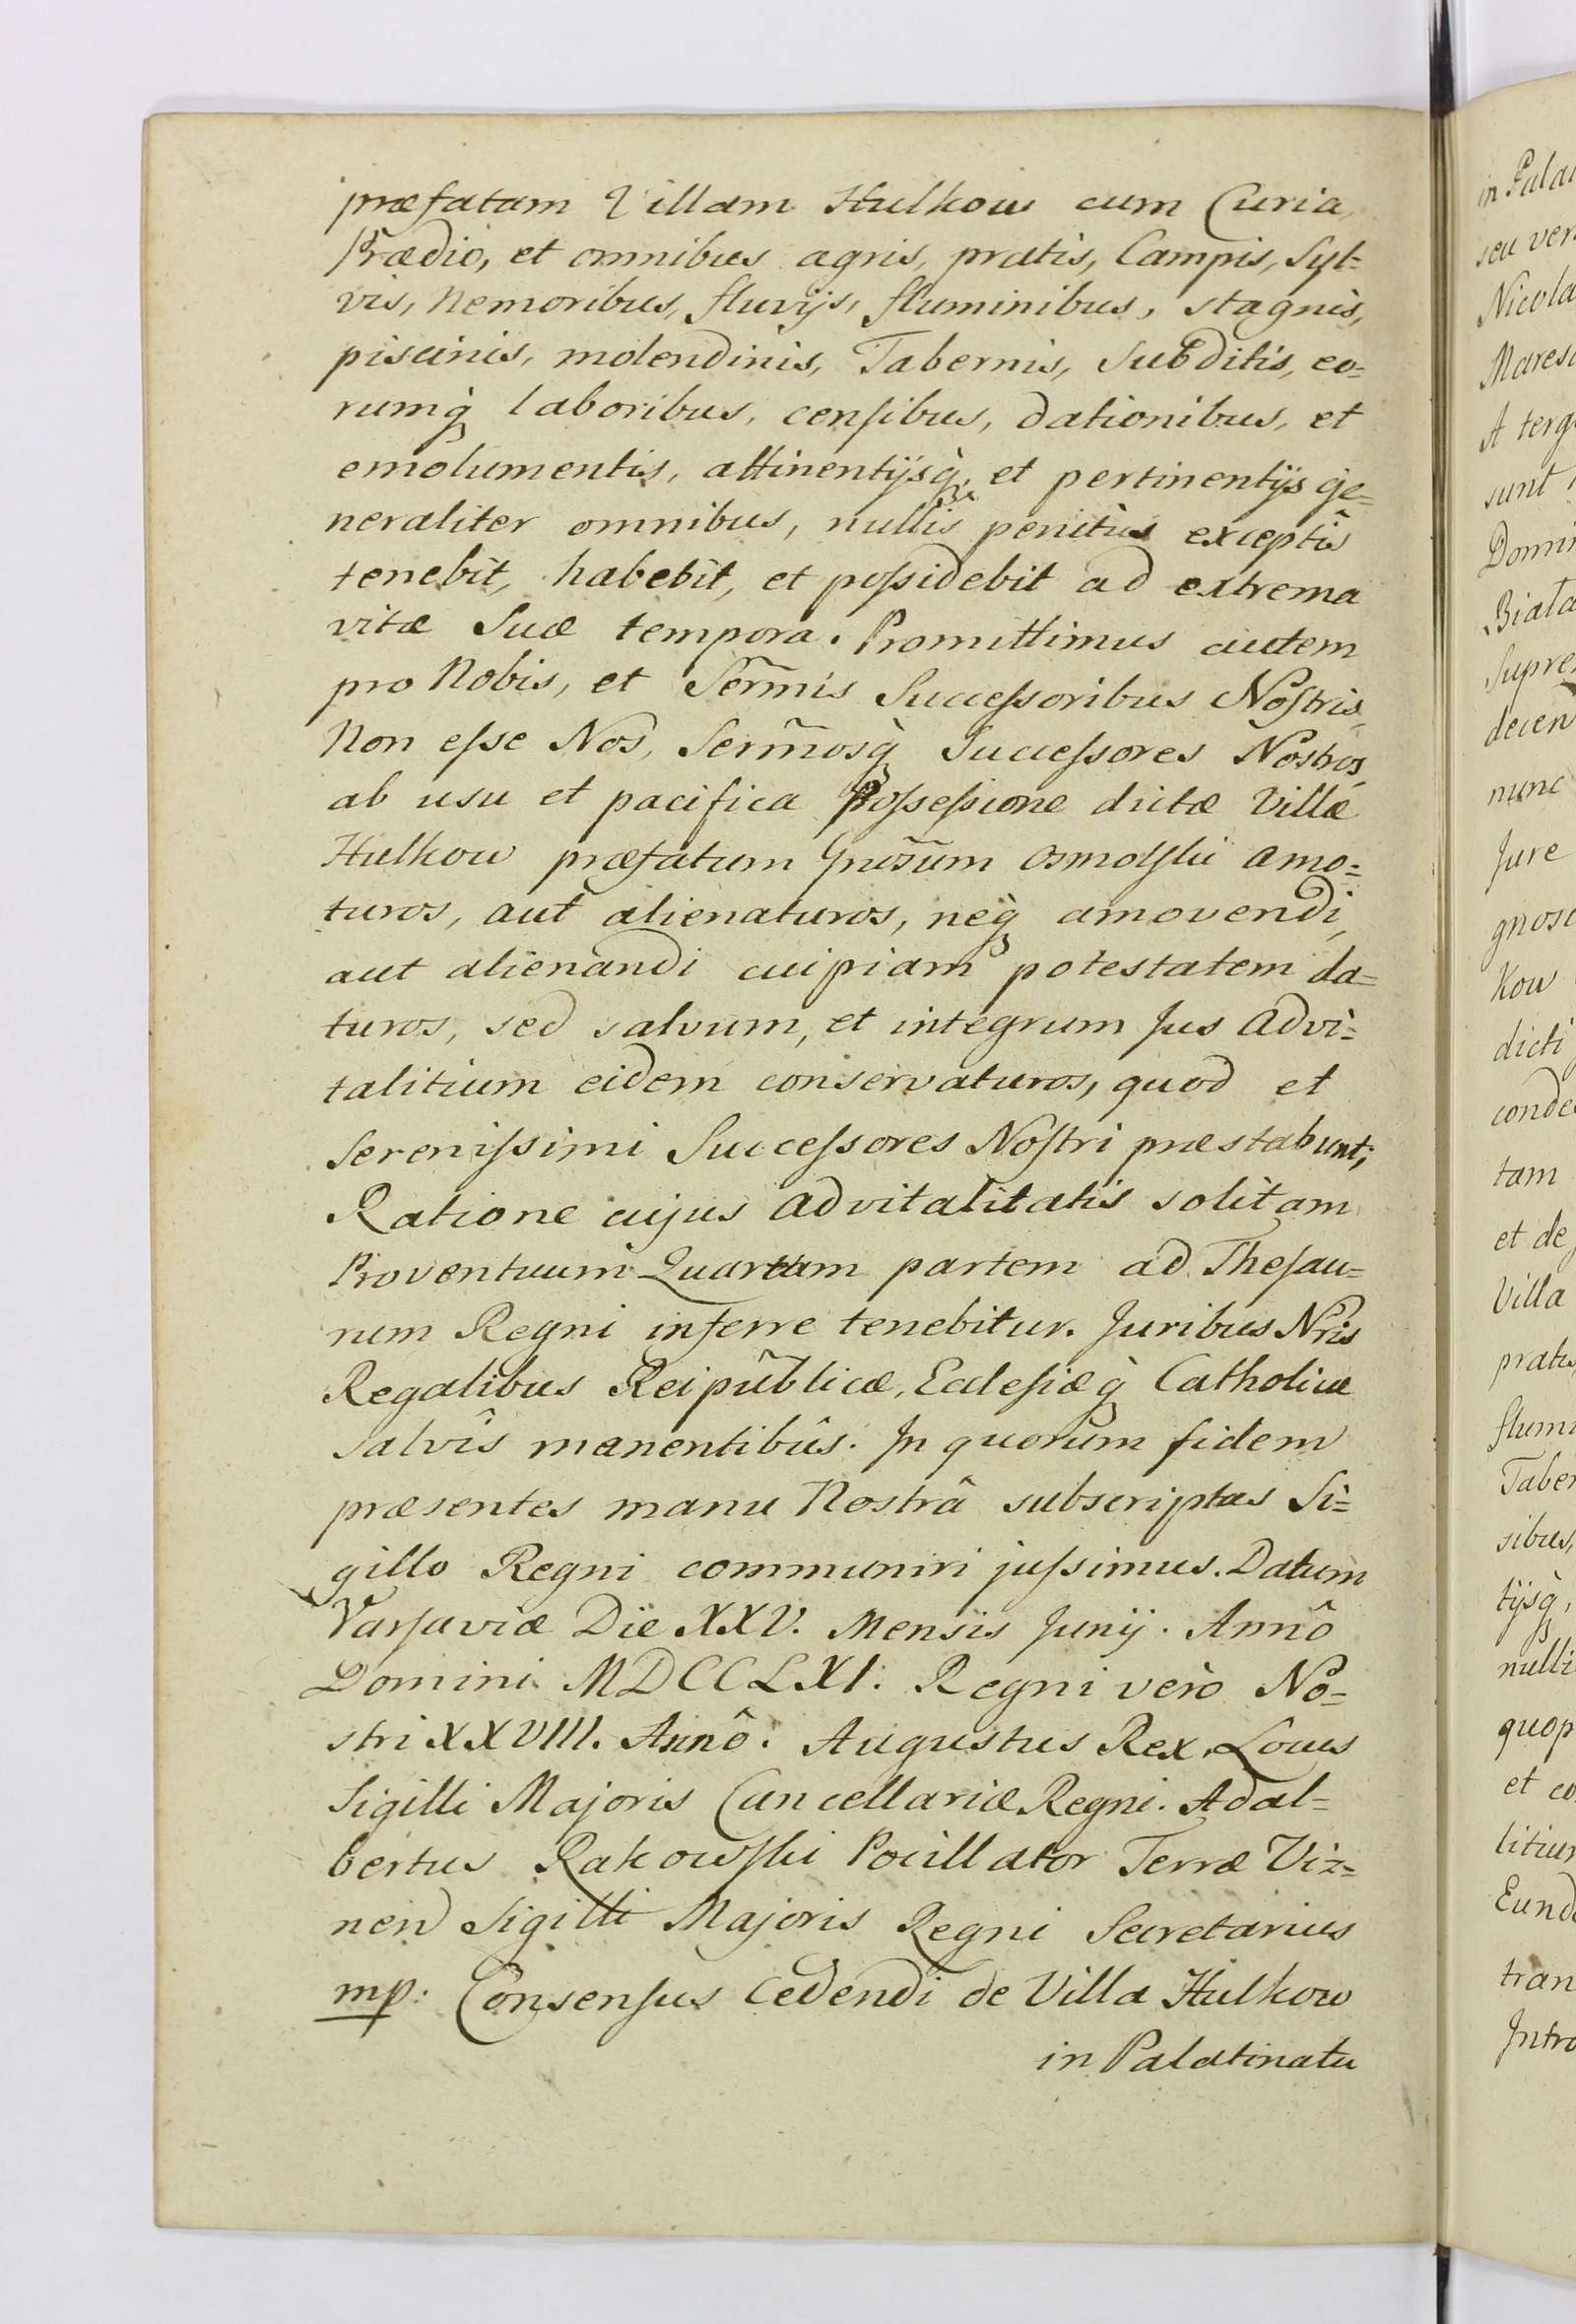 præfatam Villam Hulkow cum Curia
Prædio, et omnibus agris, pratis, Campis, Syl=
vis, Nemoribus, fluvijs, fluminibus, stagnis,
piscinis, molendinis, Tabernis, Subditis, eo=
rumq̀ laboribus, censibus, dationibus, et
emolumentis, attinentijsq̀, et pertinentijs ge=
neraliter omnibus, nullis penitùs exceptis
tenebit, habebit, et possidebit ad extrema
vitæ Suæ tempora. Promittimus autem
pro Nobis, et Serm̃is Successoribus Nostris,
Non esse Nos, Serm̃osq̀ Successores Nostros,
ab usu et pacifica Possessione dictæ Villæ
Hulkow præfatum Gnosũm Osmolski amo=
turos, aut alienaturos, neq̀ amovendi,
aut alienandi cuipiam potestatem da=
turos, sed salvum, et integrum Jus Advi=
talitium eidem conservaturos, quod et
Serenissimi Successores Nostri præstabunt;
Ratione cujus Advitalitatis solitam
Proventuum Quartam partem ad Thesau=
rum Regni inferre tenebitur. Juribus Nris
Regalibus Reipûblicæ, Ecclesiæq̀ Catholicæ
salvîs manentibûs. In quorum fidem
præsentes manu Nostrâ subscriptas Si=
gillo Regni communiri jussimus. Datum
Varsaviæ Die XXV. Mensis Junij. Annô
Domini MDCCLXI. Regni verò No=
stri XXVIII. Annô. Augustus Rex. Locus
Sigilli Majoris Cancellariæ Regni. Adal=
bertus Rakowski Pocillator Terræ Viz=
nen Sigilli Majoris Regni Secretarius
mp: Consensus Cedendi de Villa Hulkow
in Palatinatu
in Pala
seu ver
Nicola
Maresc
A terg
sunt
Domin
Biała
Supre
decen
nunc
Jure
gnosc
kow
dicti
conde
tam
et de
Villa
pratis
flumi
Taber
sibus,
tijsq̀,
nulli
quop
et co
litium
Eund
tran
Intro